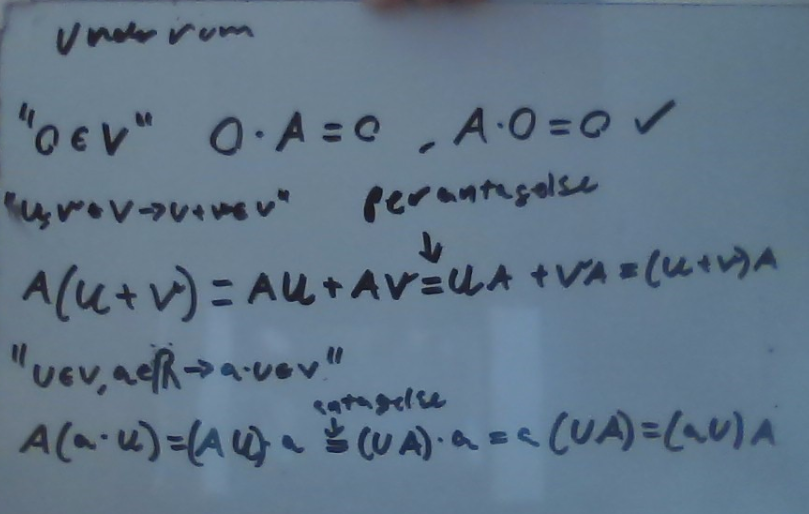 Underrum
"0∈V" 0·A=0, A·0=0 ✓
"u,v∈V→u+v∈V" per antagelse
↓
A(u+v)=Au+Av=uA+vA=(u+v)A
"u∈V, a∈ℝ→a·u∈V"
antagelse
↓
A(a·u)=(Au)·a=(uA)·a=a(uA)=(au)A